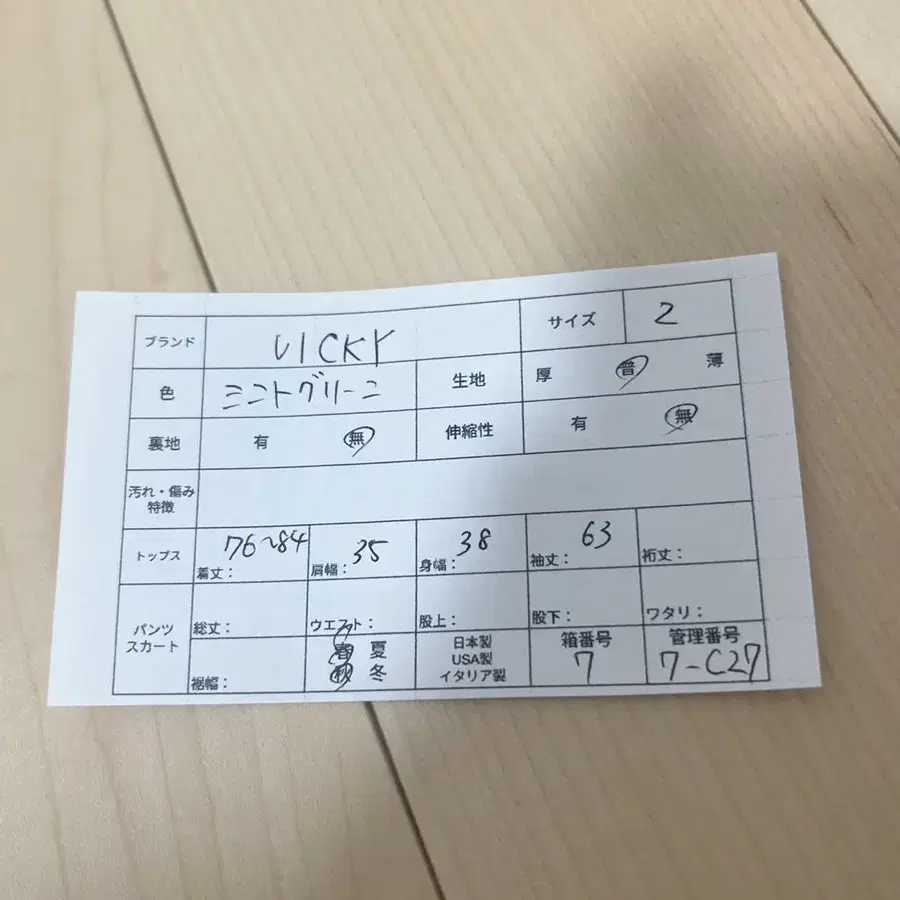 ブランド VICKY サイズ 2
色 ミントグリーン 生地 厚 普 薄
裏地 有 無 伸縮性 有 無
汚れ・傷み
特徴
トップス 着丈: 76~84 肩幅: 35 身幅: 38 袖丈: 63 裄丈:
パンツ
スカート
総丈: ウエスト: 股上: 股下: ワタリ:
裾幅:
春 夏
秋 冬
日本製
USA製
イタリア製
箱番号
7
管理番号
7-C27